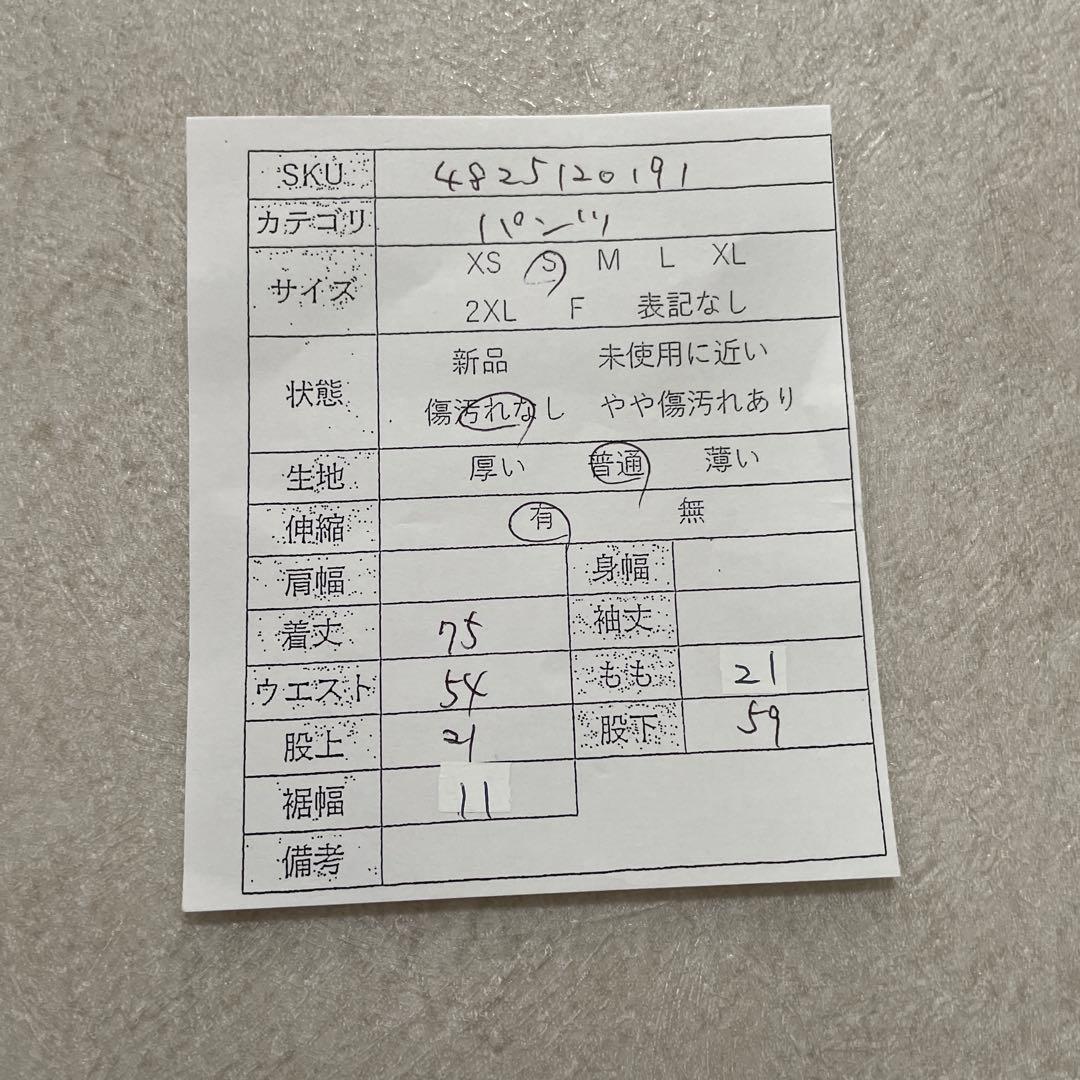 SKU 4825120191
カテゴリ パンツ
サイズ XS S M L XL
2XL F 表記なし
状態 新品 未使用に近い
傷汚れなし やや傷汚れあり
生地 厚い 普通 薄い
伸縮 有 無
肩幅 身幅
着丈 75 袖丈
ウエスト 54 もも 21
股上 21 股下 59
裾幅 11
備考